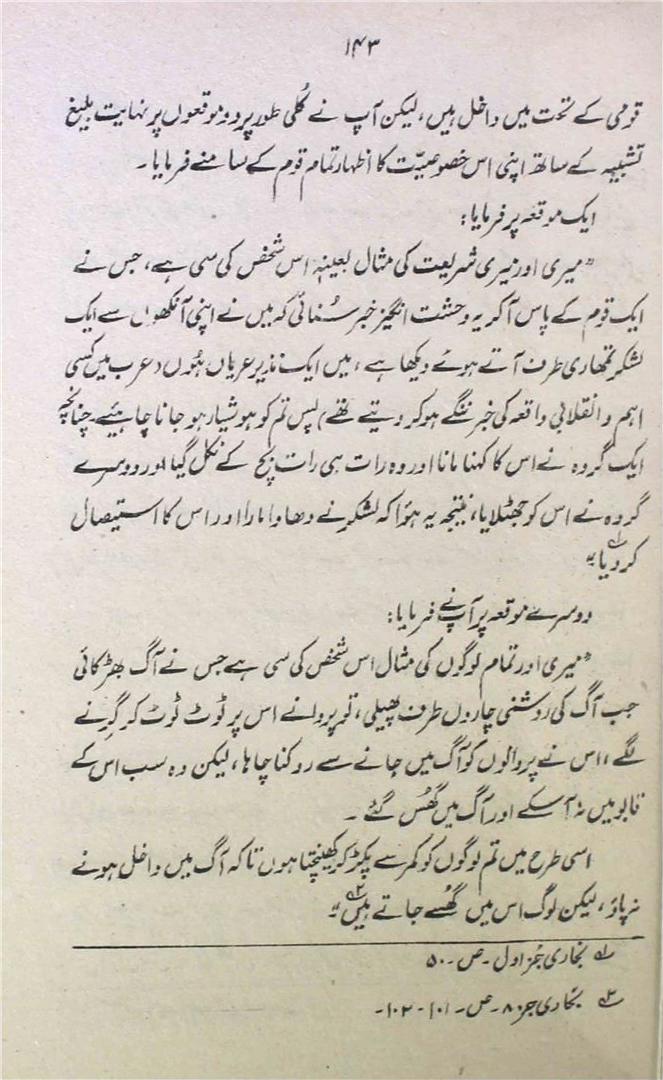 ۱۴۳
قومی کے تحت میں داخل ہیں، لیکن آپ نے کُلی طور پر دو موقعوں پر نہایت بلیغ
تشبیہ کے ساتھ اپنی اس خصوصیّت کا اظہار تمام قوم کے سامنے فرمایا۔
ایک موقعہ پر فرمایا:
"میری اور میری شریعت کی مثال بعینہٖ اس شخص کی سی ہے، جس نے
ایک قوم کے پاس آ کر یہ وحشت انگیز خبر سُنائی کہ میں نے اپنی آنکھوں سے ایک
لشکر تمھاری طرف آتے ہوئے دیکھا ہے، میں ایک نذیر عریاں ہُوں (عرب میں کسی
اہم و انقلابی واقعہ کی خبر ننگے ہو کر دیتے تھے) پس تم کو ہوشیار ہو جانا چاہیئے۔ چنانچہ
ایک گروہ نے اس کا کہنا مانا اور وہ رات ہی رات بچ کے نکل گیا اور دوسرے
گروہ نے اس کو جھٹلایا، نتیجہ یہ ہُوا کہ لشکر نے دھاوا مارا اور اس کا استیصال
کر دیا۔"۱؎
دوسرے موقعہ پر آپ نے فرمایا:
"میری اور تمام لوگوں کی مثال اس شخص کی سی ہے جس نے آگ بھڑکائی
جب آگ کی روشنی چاروں طرف پھیلی، تو پروانے اس پر ٹوٹ ٹوٹ کر گرنے
لگے، اس نے پروانوں کو آگ میں جانے سے روکنا چاہا، لیکن وہ سب اس کے
قابو میں نہ آ سکے اور آگ میں گھُس گئے۔
اسی طرح میں تم لوگوں کو کمر سے پکڑ کر کھینچتا ہوں تاکہ آگ میں داخل ہونے
نہ پاؤ، لیکن لوگ اس میں گھُسے جاتے ہیں۔"۲؎
۱؎ بخاری جُز اول۔ص۔۵۰
۲؎ بخاری جز ۸۔ص۔۱۰۱-۱۰۲۔